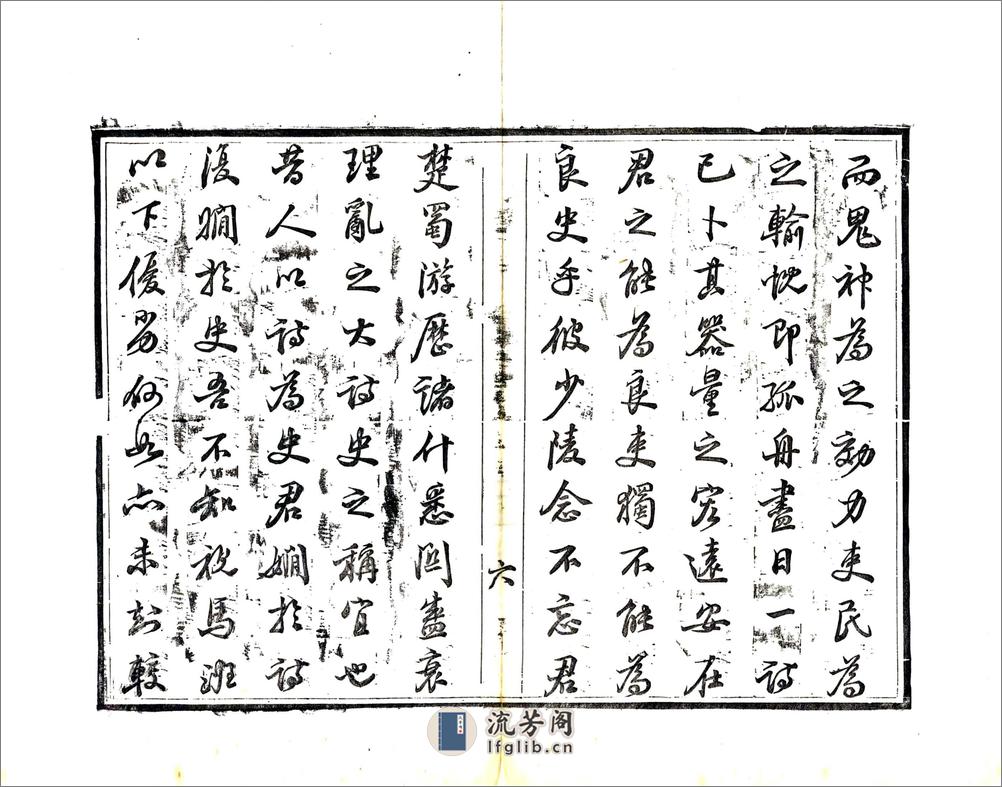 而鬼神為之効力吏民為
之輸忱即孤舟盡日一詩
已卜其器量之宏遠安在
君之能為良吏獨不能為
良史乎彼少陵念不忘君
六
楚蜀游歷諸什悉關盛衰
理亂之大詩史之稱宜也
昔人以詩為史君嫺於詩
復嫺於史吾不知視馬班
以下優劣何如亦未較
流芳阁
lfglib.cn